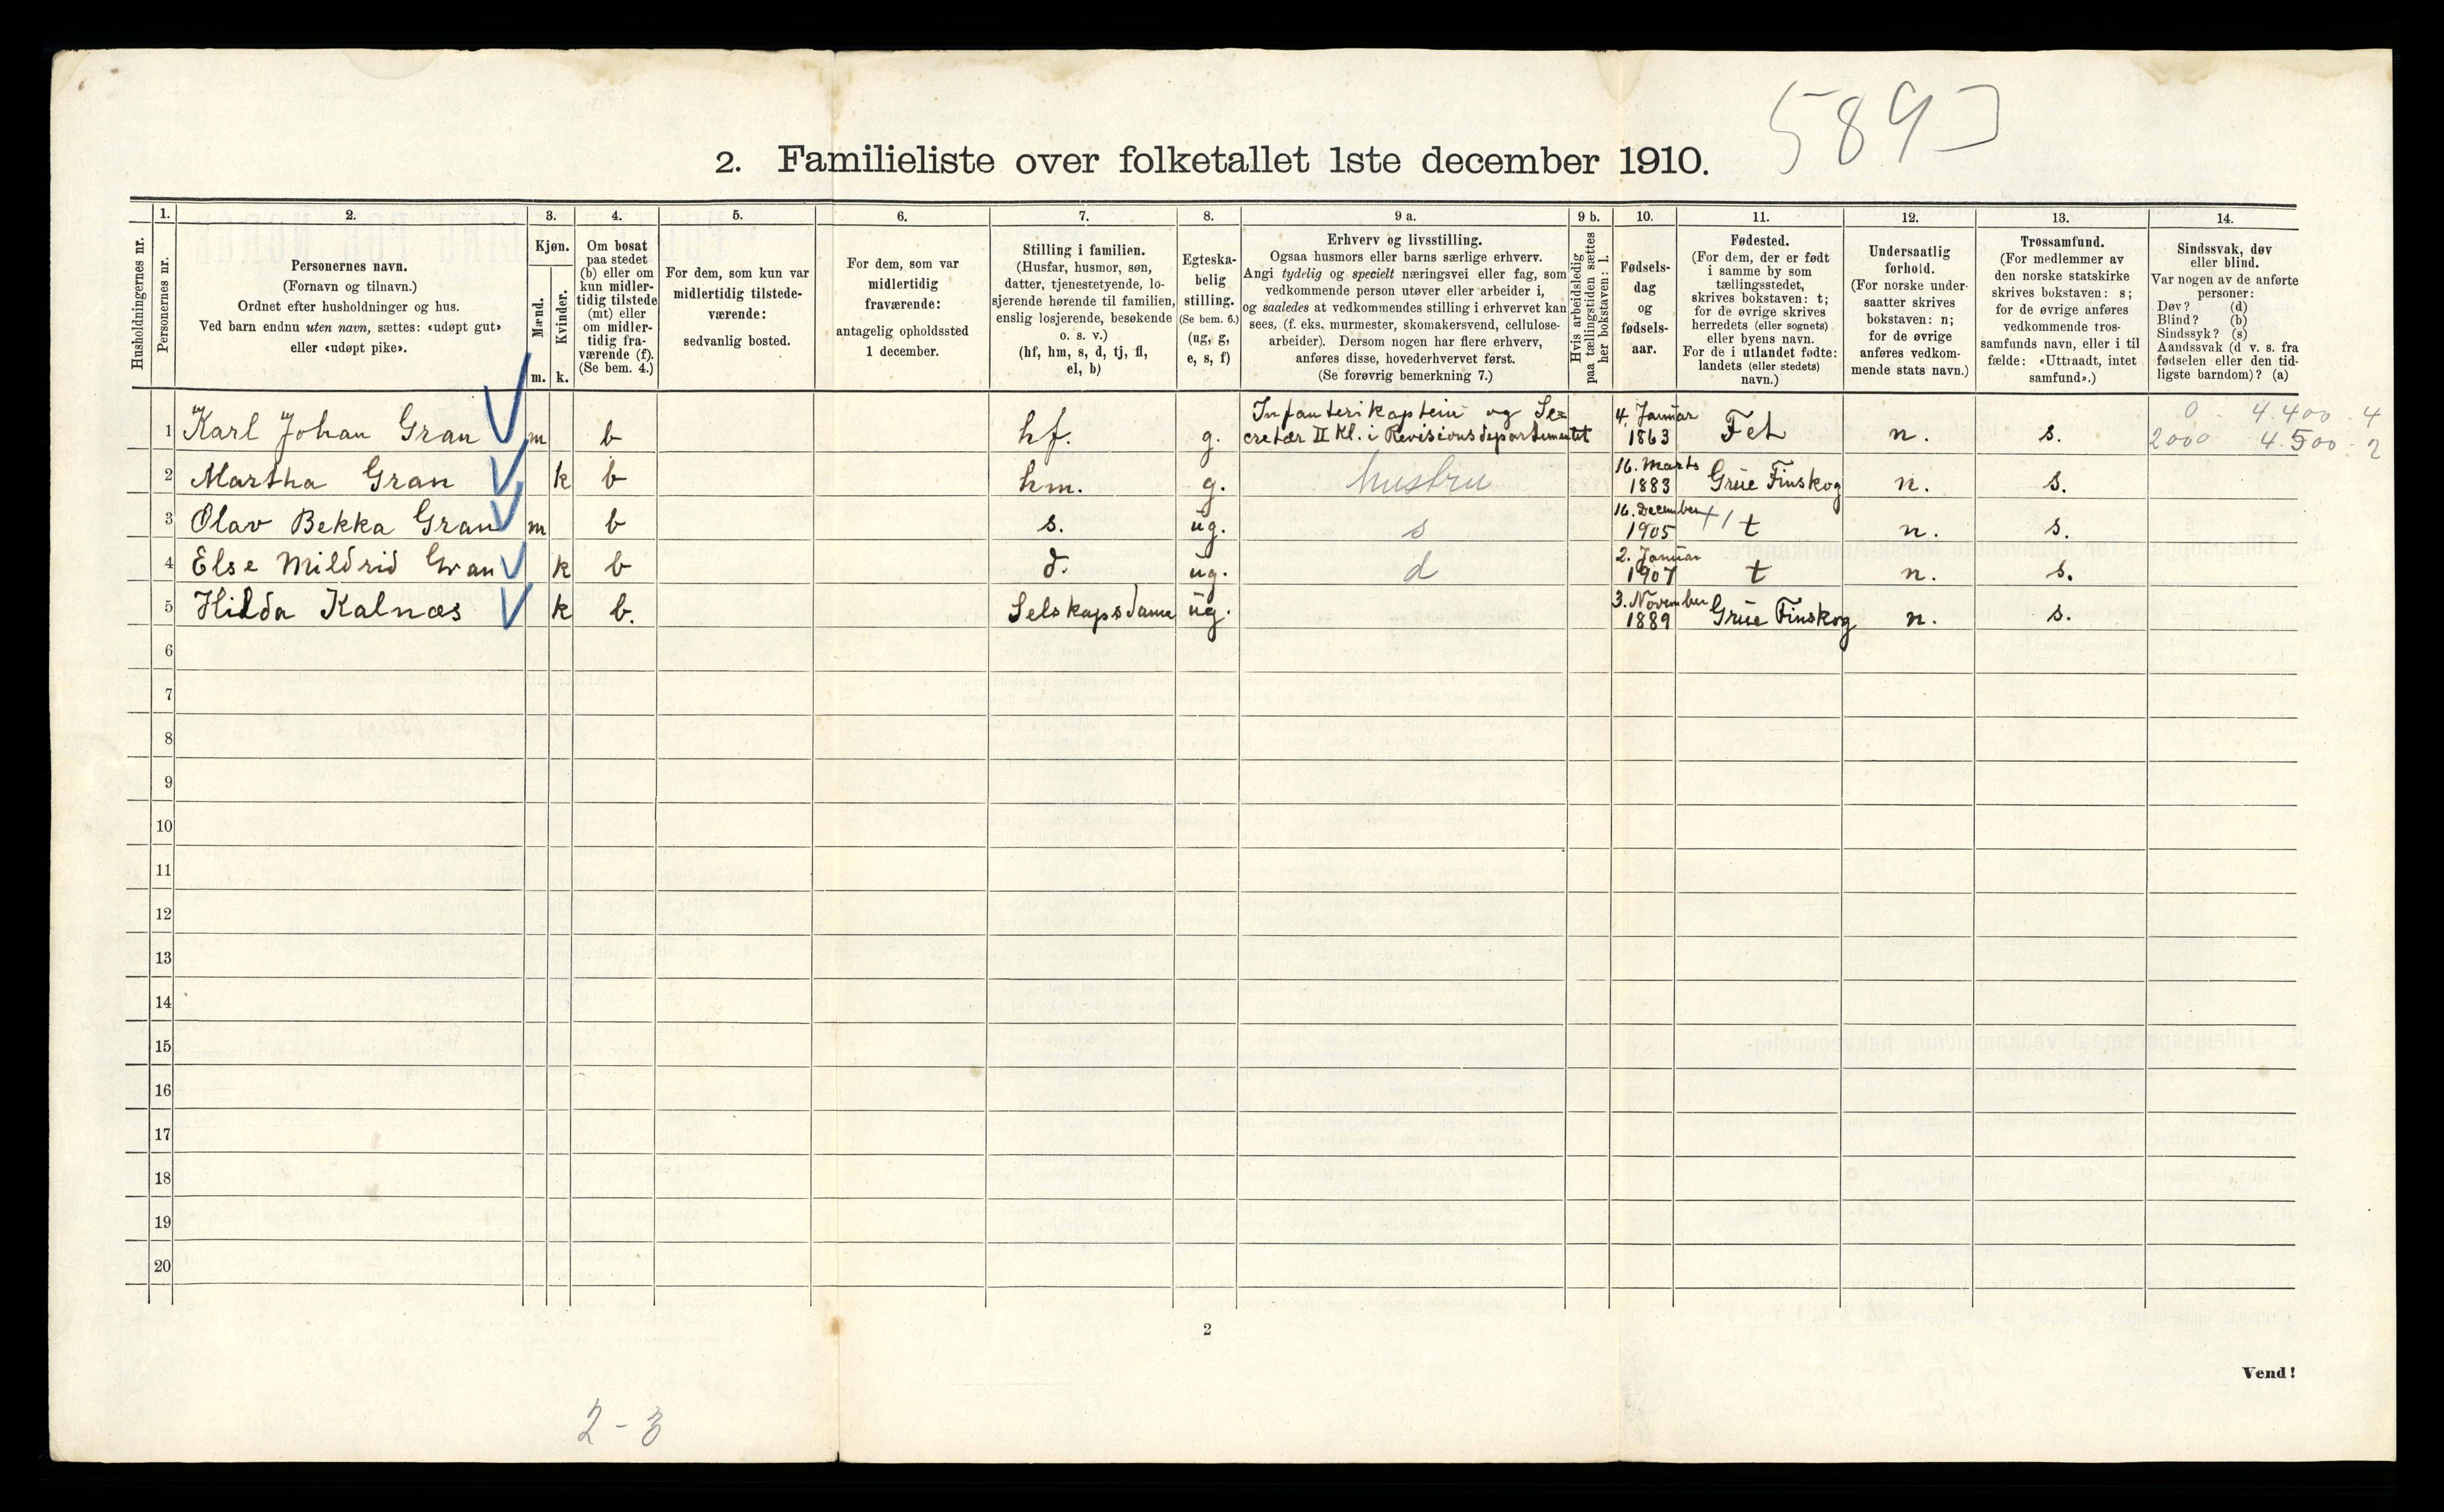 5893
2. Familieliste over folketallet 1ste december 1910.
Husholdningernes nr.
1. Personernes nr.
2. Personernes navn.
(Fornavn og tilnavn.)
Ordnet efter husholdninger og hus.
Ved barn endnu uten navn, sættes: «udøpt gut»
eller «udøpt pike».
3. Kjøn.
Mænd. m.
Kvinder. k.
4. Om bosat
paa stedet
(b) eller om
kun midler-
tidig tilstede
(mt) eller
om midler-
tidig fra-
værende (f).
(Se bem. 4.)
5. For dem, som kun var
midlertidig tilstede-
værende:
sedvanlig bosted.
6. For dem, som var
midlertidig
fraværende:
antagelig opholdssted
1 december.
7. Stilling i familien.
(Husfar, husmor, søn,
datter, tjenestetyende, lo-
sjerende hørende til familien,
enslig losjerende, besøkende
o. s. v.)
(hf, hm, s, d, tj, fl,
el, b)
8. Egteska-
belig
stilling.
(Se bem. 6.)
(ug, g,
e, s, f)
9 a. Erhverv og livsstilling.
Ogsaa husmors eller barns særlige erhverv.
Angi tydelig og specielt næringsvei eller fag, som
vedkommende person utøver eller arbeider i,
og saaledes at vedkommendes stilling i erhvervet kan
sees, (f. eks. murmester, skomakersvend, cellulose-
arbeider). Dersom nogen har flere erhverv,
anføres disse, hovederhvervet først.
(Se forøvrig bemerkning 7.)
9 b. Hvis arbeidsledig
paa tællingstiden sættes
her bokstaven: l.
10. Fødsels-
dag
og
fødsels-
aar.
11. Fødested.
(For dem, der er født
i samme by som
tællingsstedet,
skrives bokstaven: t;
for de øvrige skrives
herredets (eller sognets)
eller byens navn.
For de i utlandet fødte:
landets (eller stedets)
navn.)
12. Undersaatlig
forhold.
(For norske under-
saatter skrives
bokstaven: n;
for de øvrige
anføres vedkom-
mende stats navn.)
13. Trossamfund.
(For medlemmer av
den norske statskirke
skrives bokstaven: s;
for de øvrige anføres
vedkommende tros-
samfunds navn, eller i til
fælde: «Uttraadt, intet
samfund».)
14. Sindssvak, døv
eller blind.
Var nogen av de anførte
personer:
Døv? (d)
Blind? (b)
Sindssyk? (s)
Aandssvak (d v. s. fra
fødselen eller den tid-
ligste barndom)? (a)
1 Karl Johan Gran m b hf. g. Infanterikaptein og Se=
cretær II Kl. i Revisionsdepartementet 4. Januar
1863 Fet n. s. 0 4.400 - 4
2000 4.500 - 2
2 Martha Gran k b hm. g. hustru 16. Marts
1883 Grue Finskog n. s.
3 Olav Bekka Gran m b s. ug. s 16. December
1905 t n. s.
4 Else Mildrid Gran k b d. ug. d 2. Januar
1907 t n. s.
5 Hilda Kalnæs k b. Selskapsdame ug. 3. November
1889 Grue Finskog n. s.
6
7
8
9
10
11
12
13
14
15
16
17
18
19
20
2
Vend!
2 - 3